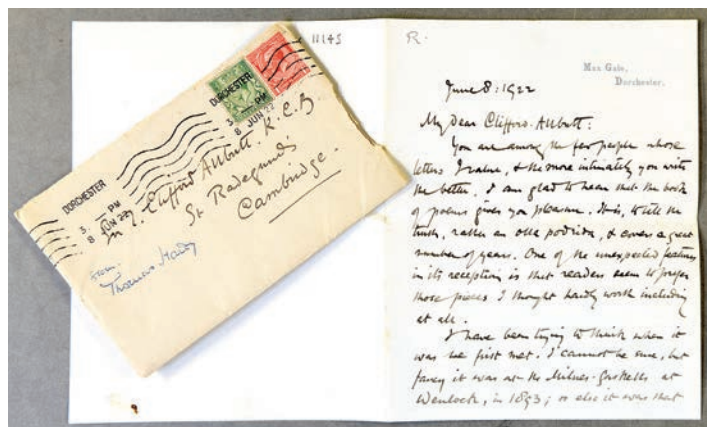 DORCHESTER
3. PM
8 JUN 22
DORCHESTER
3. PM
8 JUN 22
Sir T. Clifford Allbutt. K.C.B
St Radegund's
Cambridge.
from
Thomas Hardy
11145
R.
Max Gate,
Dorchester.
June 8: 1922
My Dear Clifford-Allbutt:
You are among the few people whose
letters I value, & the more intimately you write
the better. I am glad to hear that the book
of poems gives you pleasure. It is, to tell the
truth, rather an olla podrida, & covers a great
number of years. One of the unexpected features
in its reception is that readers seem to prefer
those pieces I thought hardly worth including
at all.
I have been trying to think when it
was we first met. I cannot be sure, but
fancy it was at the Milnes-Gaskells at
Wenlock, in 1893; or else it was that